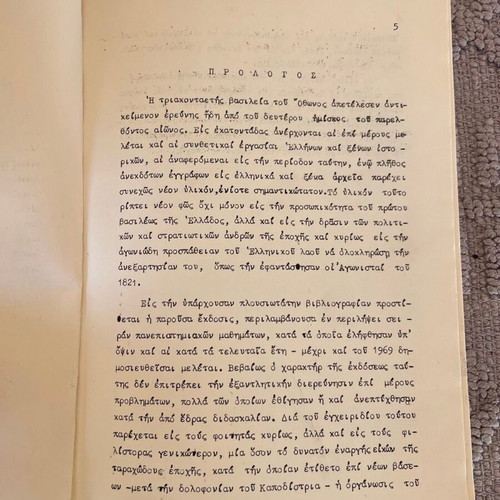 5
ΠΡΟΛΟΓΟΣ
Ἡ τριακονταετής βασιλεία τοῦ Ὄθωνος ἀπετέλεσεν ἀντι-
κείμενον ἐρεύνης ἤδη ἀπό τοῦ δευτέρου ἡμίσεος τοῦ παρελ-
θόντος αἰῶνος. Εἰς ἑκατοντάδας ἀνέρχονται αἱ ἐπί μέρους με-
λέται καί αἱ συνθετικαί ἐργασίαι Ἑλλήνων καί ξένων ἱστο-
ρικῶν, αἱ ἀναφερόμεναι εἰς τήν περίοδον ταύτην, ἐνῷ πλῆθος
ἀνεκδότων ἐγγράφων εἰς ἑλληνικά καί ξένα ἀρχεῖα παρέχει
συνεχῶς νέον ὑλικόν, ἐνίοτε σημαντικώτατον. Τό ὑλικόν τοῦτο
ρίπτει νέον φῶς ὄχι μόνον εἰς τήν προσωπικότητα τοῦ πρώτου
βασιλέως τῆς Ἑλλάδος, ἀλλά καί εἰς τήν δρᾶσιν τῶν πολιτι-
κῶν καί στρατιωτικῶν ἀνδρῶν τῆς ἐποχῆς καί κυρίως εἰς τήν
ἀγωνιώδη προσπάθειαν τοῦ Ἑλληνικοῦ λαοῦ νά ὁλοκληρώσῃ τήν
ἀνεξαρτησίαν του, ὅπως τήν ἐφαντάσθησαν οἱ Ἀγωνισταί τοῦ
1821.
Εἰς τήν ὑπάρχουσαν πλουσιωτάτην βιβλιογραφίαν προστί-
θεται ἡ παροῦσα ἔκδοσις, περιλαμβάνουσα ἐν περιλήψει σει-
ράν πανεπιστημιακῶν μαθημάτων, κατά τά ὁποῖα ἐλήφθησαν ὑπ'
ὄψιν καί αἱ κατά τά τελευταῖα ἔτη - μέχρι καί τοῦ 1969 δη-
μοσιευθεῖσαι μελέται. Βεβαίως ὁ χαρακτήρ τῆς ἐκδόσεως ταύ-
της δέν ἐπιτρέπει τήν ἐξαντλητικήν διερεύνησιν ἐπί μέρους
προβλημάτων, πολλά τῶν ὁποίων ἐθίγησαν ἤ καί ἀνεπτύχθησαν
κατά τήν ἀπό ἕδρας διδασκαλίαν. Διά τοῦ ἐγχειριδίου τούτου
παρέχεται εἰς τούς φοιτητάς κυρίως, ἀλλά καί εἰς τούς φι-
λίστορας γενικώτερον, μία ὅσον τό δυνατόν ἐναργής εἰκών τῆς
ταραχώδους ἐποχῆς, κατά τήν ὁποίαν ἐτίθετο ἐπί νέων βάσε-
ων -μετά τήν δολοφονίαν τοῦ Καποδίστρια - ἡ ὀργάνωσις τοῦ